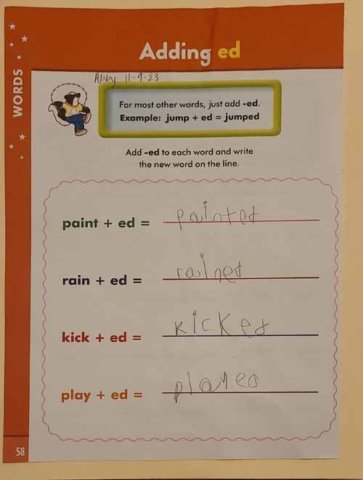 Adding ed
Abby 11-9-23
WORDS
For most other words, just add -ed.
Example: jump + ed = jumped
Add -ed to each word and write
the new word on the line.
paint + ed = painted
rain + ed = rained
kick + ed = kicked
play + ed = played
58